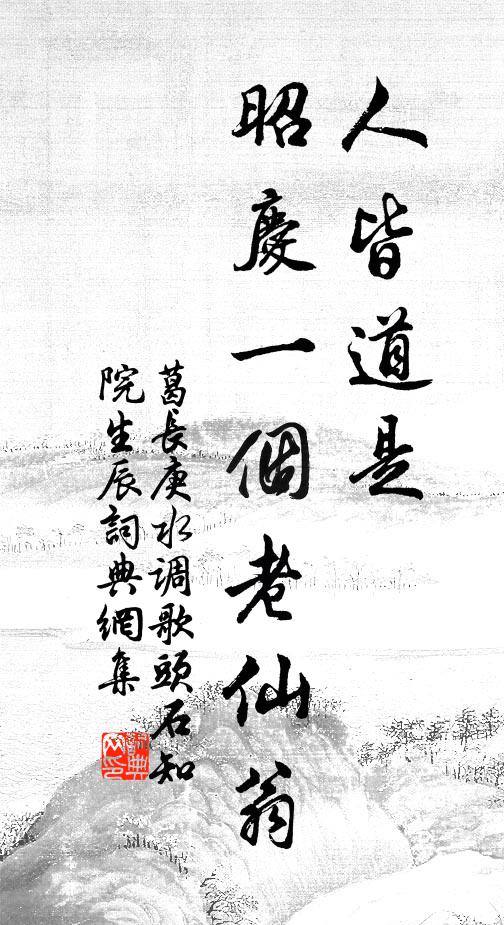 人皆道是
昭慶一個老仙翁
葛長庚水调歌頭石知
院生辰詞典網集